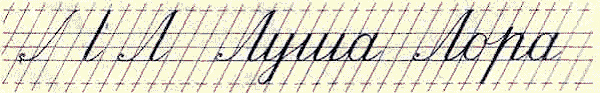 Л Луша Лора